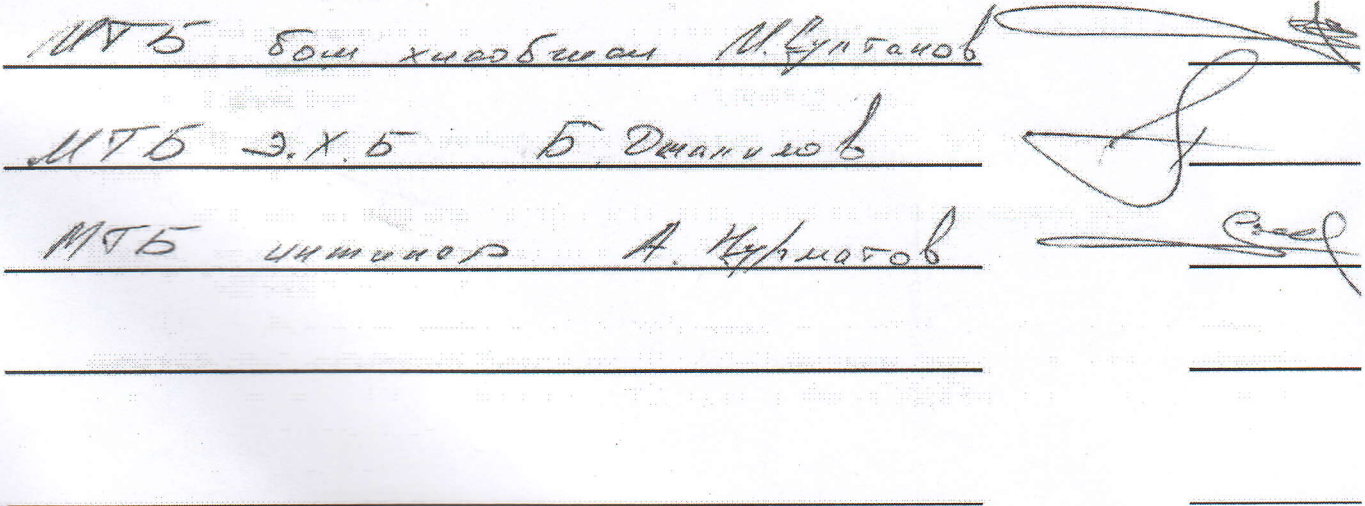 МТБ бош хисобчи М. Султанов
МТБ Э.Х.Б Б. Джанилов
МТБ инжинер А. Нурматов